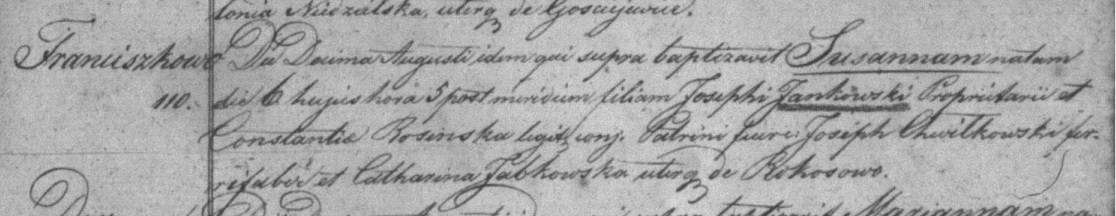 tonia Niedzalska, uterq de Gosciejewice.
Franciszkowo Die Decima Augusti idem qui supra baptizavit Susannam natam
110. die 6 hujus hora 5 post meridiem filiam Josephi Jankowski Proprietarii et
Constantia Rosinska legit. conj. Patrini fuere: Joseph Chwilkowski fer-
rifaber et Catharina Jabkowska uterq de Rokosowo.
supra baptizavit Mariannam